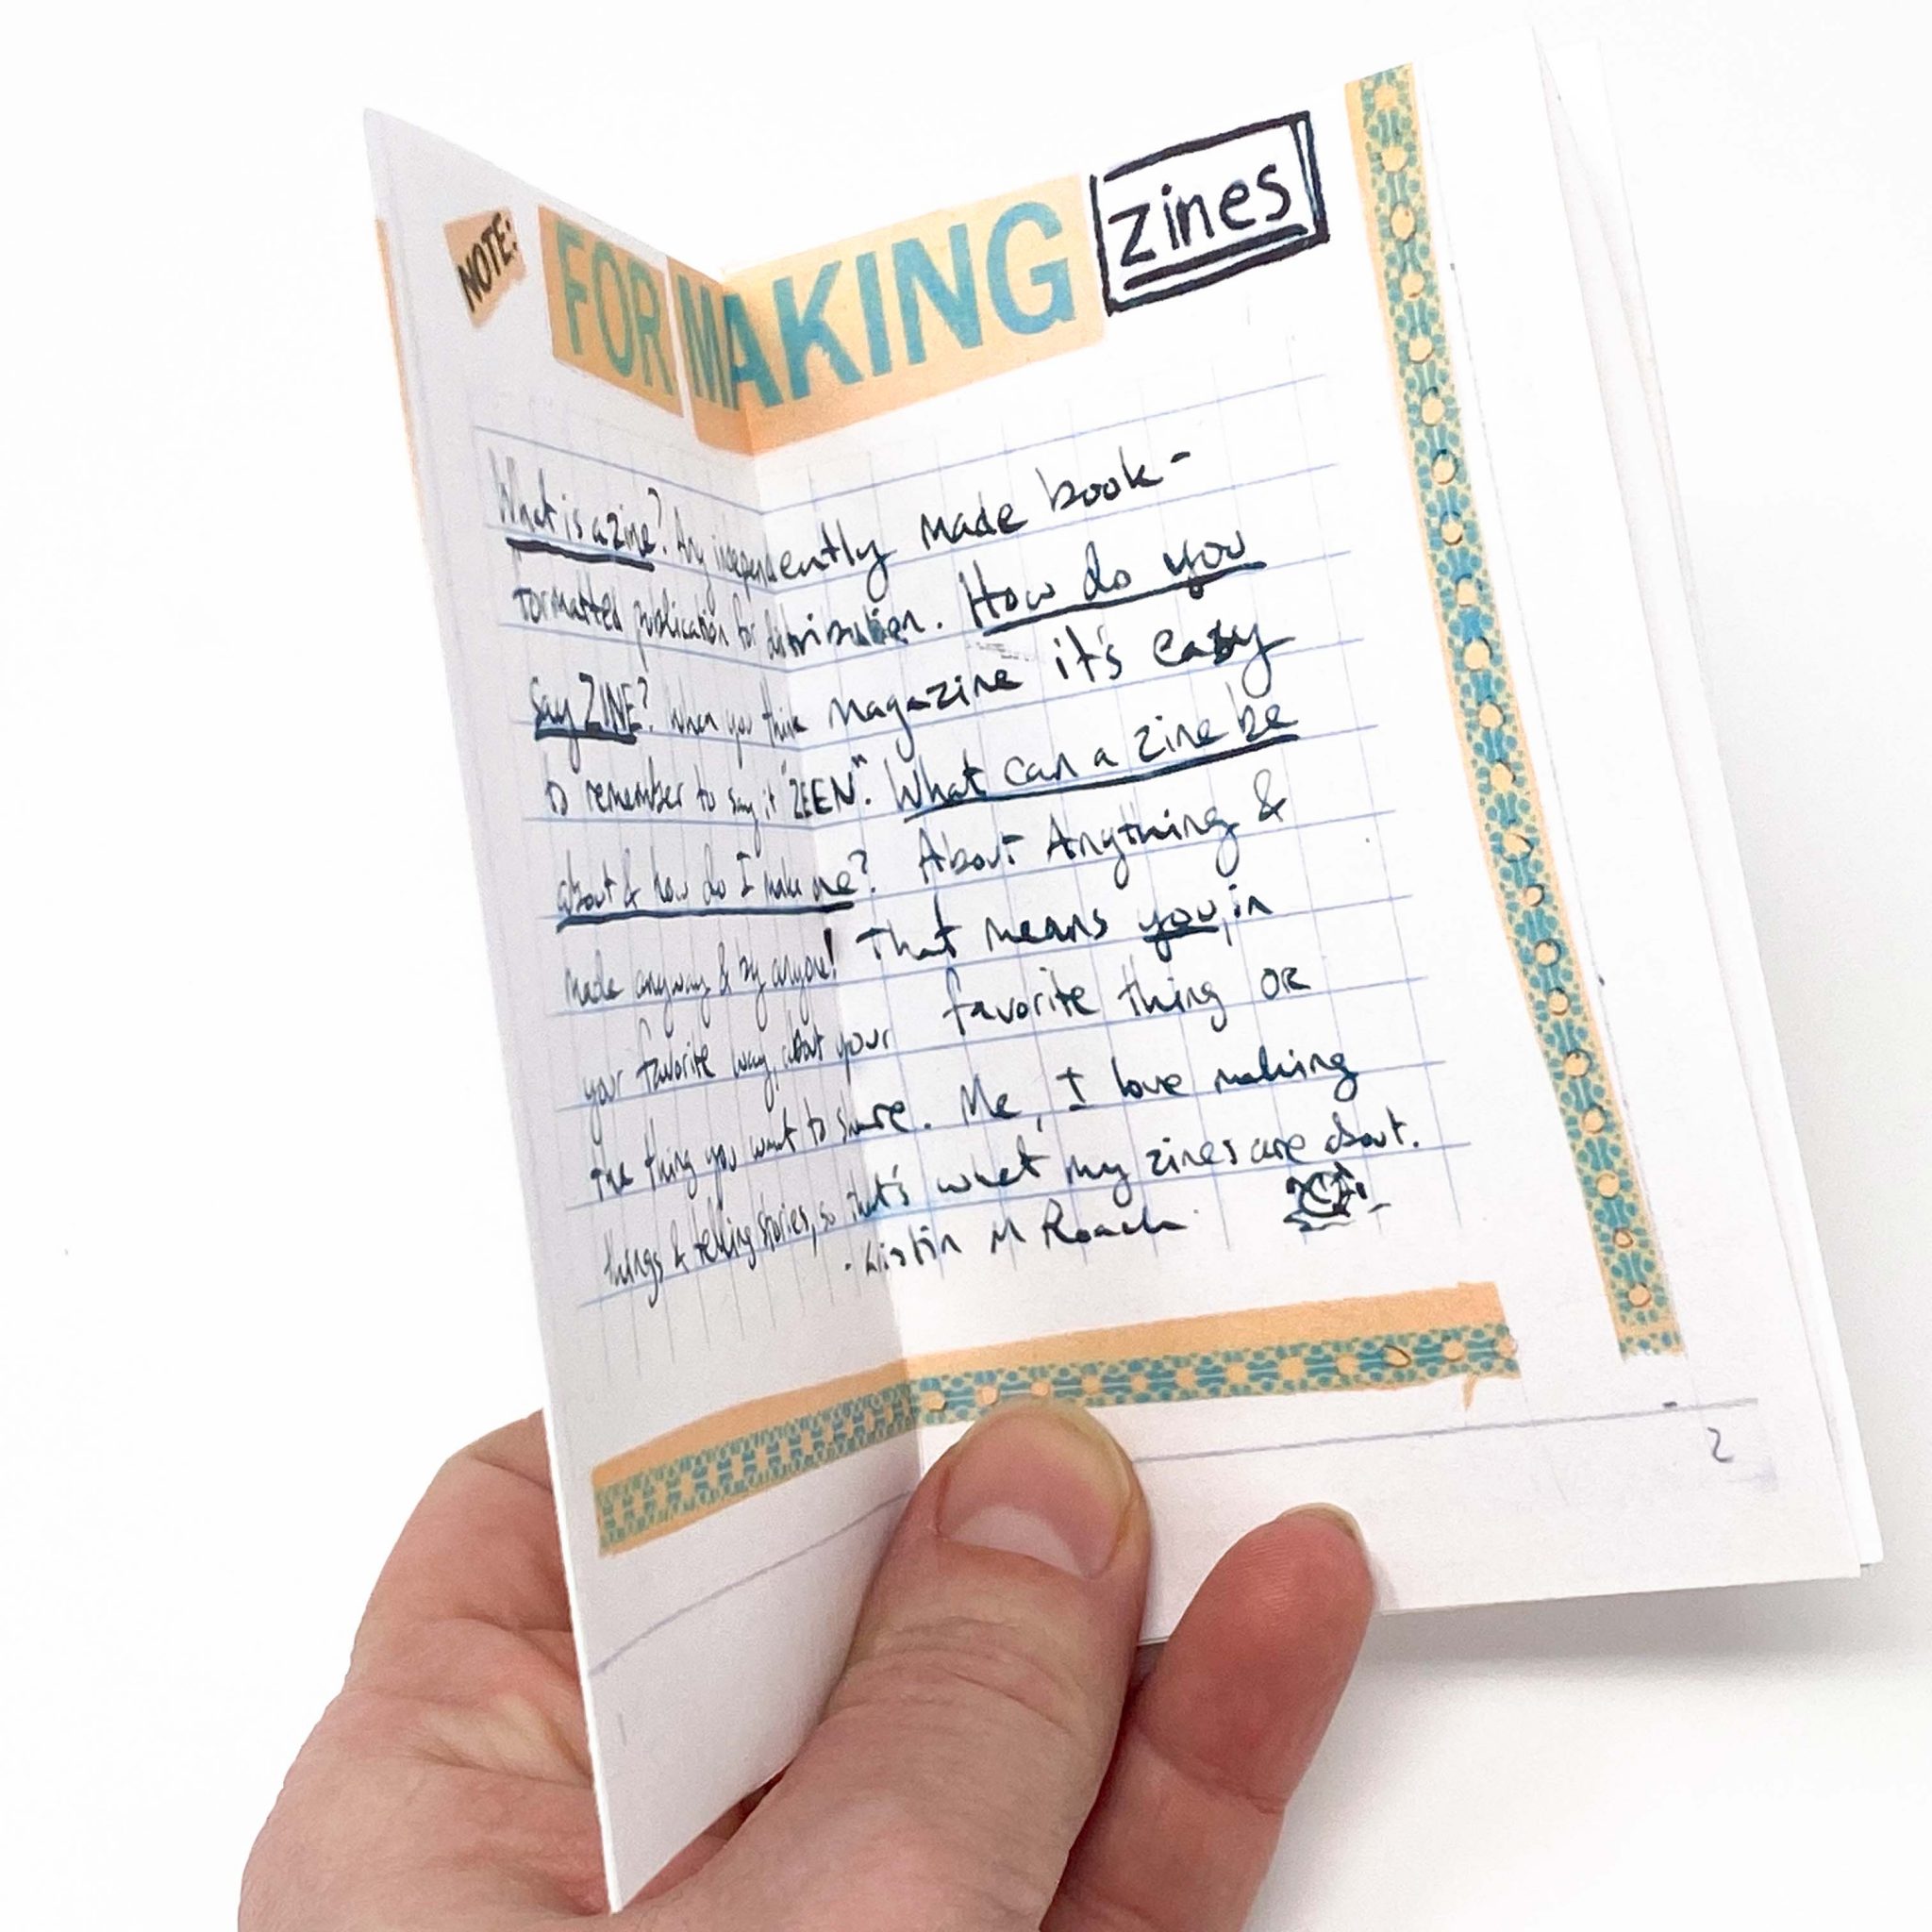 NOTE: FOR MAKING zines
What is a zine? Any independently made book-
formatted publication for distribution. How do you
say ZINE? When you think magazine it's easy
to remember to say it "ZEEN". What can a zine be
about & how do I make one? About Anything &
made anyway & by anyone! That means you, in
your favorite way, about your favorite thing OR
the thing you want to share. Me, I love making
things & telling stories, so that's what my zines are about.
M Roach
2